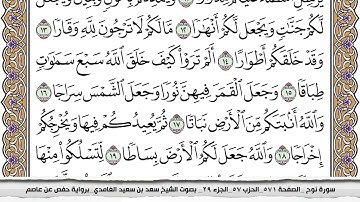 لَّكُمْ جَنَّٰتٍ وَيَجْعَل لَّكُمْ أَنْهَٰرًا ١٢ مَّا لَكُمْ لَا تَرْجُونَ لِلَّهِ وَقَارًا ١٣
وَقَدْ خَلَقَكُمْ أَطْوَارًا ١٤ أَلَمْ تَرَوْا۟ كَيْفَ خَلَقَ ٱللَّهُ سَبْعَ سَمَٰوَٰتٍ
طِبَاقًا ١٥ وَجَعَلَ ٱلْقَمَرَ فِيهِنَّ نُورًا وَجَعَلَ ٱلشَّمْسَ سِرَاجًا ١٦
وَٱللَّهُ أَنۢبَتَكُم مِّنَ ٱلْأَرْضِ نَبَاتًا ١٧ ثُمَّ يُعِيدُكُمْ فِيهَا وَيُخْرِجُكُمْ
إِخْرَاجًا ١٨ وَٱللَّهُ جَعَلَ لَكُمُ ٱلْأَرْضَ بِسَاطًا ١٩ لِّتَسْلُكُوا۟ مِنْهَا
سورة نوح _ الصفحة ٥٧١_ الحزب ٥٧_ الجزء ٢٩ _ بصوت الشيخ سعد بن سعيد الغامدي_ برواية حفص عن عاصم